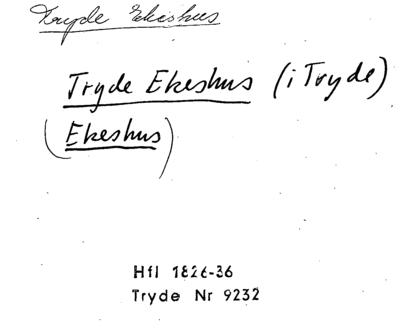 Tryde Ekeshus
Tryde Ekeshus (i Tryde)
(Ekeshus)
Hfl 1826-36
Tryde Nr 9232